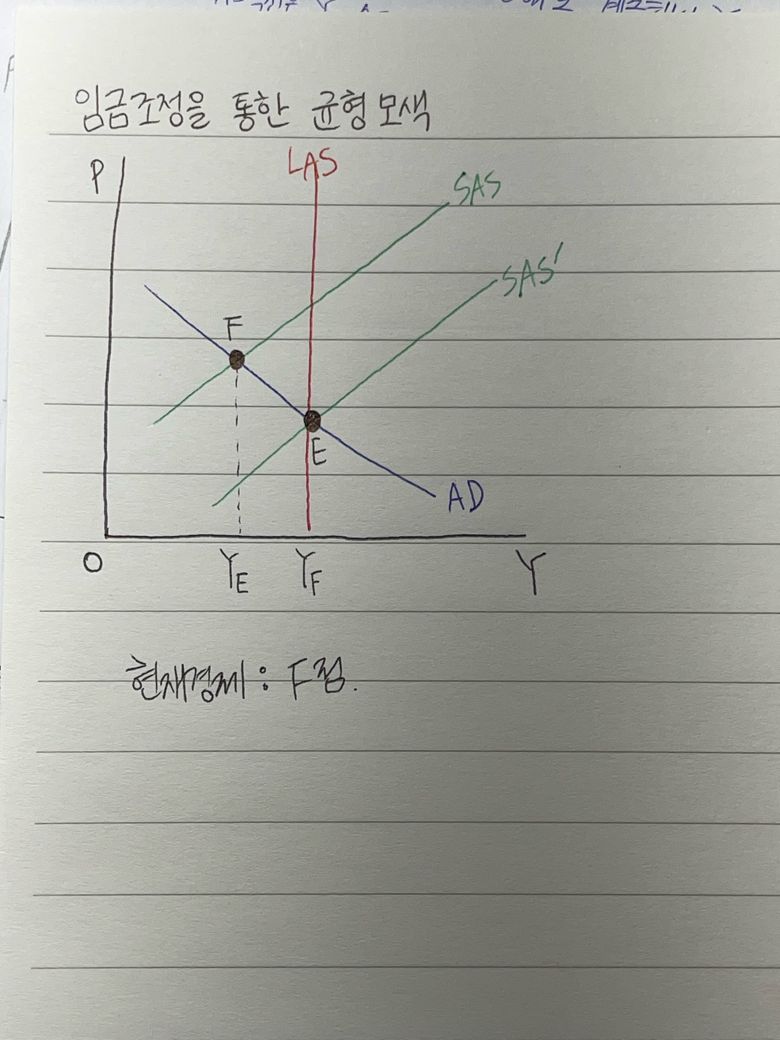 임금조정을 통한 균형 모색
P
LAS
SAS
SAS'
F
E
AD
O
Y_E
Y_F
Y
현재경제 : F점.